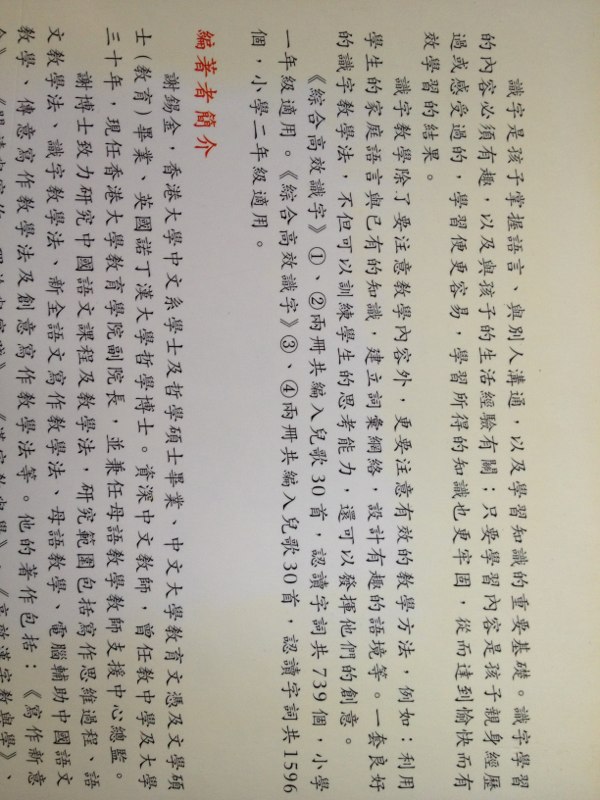 識字是孩子掌握語言、與別人溝通，以及學習知識的重要基礎。識字學習
的內容必須有趣，以及與孩子的生活經驗有關；只要學習內容是孩子親身經歷
過或感受過的，學習便更容易，學習所得的知識也更牢固，從而達到愉快而有
效學習的結果。
識字教學除了要注意教學內容外，更要注意有效的教學方法，例如：利用
學生的家庭語言與已有的知識，建立詞彙網絡，設計有趣的語境等。一套良好
的識字教學法，不但可以訓練學生的思考能力，還可以發揮他們的創意。
《綜合高效識字》①、②兩冊共編入兒歌30首，認讀字詞共739個，小學
一年級適用。《綜合高效識字》③、④兩冊共編入兒歌30首，認讀字詞共1596
個，小學二年級適用。
編著者簡介
謝錫金，香港大學中文系學士及哲學碩士畢業、中文大學教育文憑及文學碩
士（教育）畢業、英國諾丁漢大學哲學博士。資深中文教師，曾任教中學及大學
三十年，現任香港大學教育學院副院長，並兼任母語教學教師支援中心總監。
謝博士致力研究中國語文課程及教學法，研究範圍包括寫作思維過程、語
文教學法、識字教學法、新全語文寫作教學法、母語教學、電腦輔助中國語文
教學、傳意寫作教學法及創意寫作教學法等。他的著作包括：《寫作新意